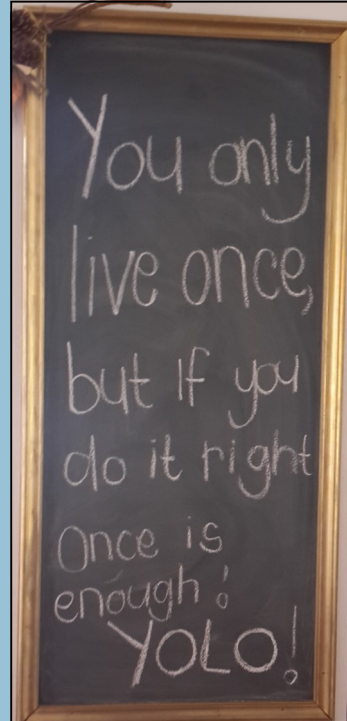 You only
live once,
but If you
do it right
Once is
enough!
YOLO!